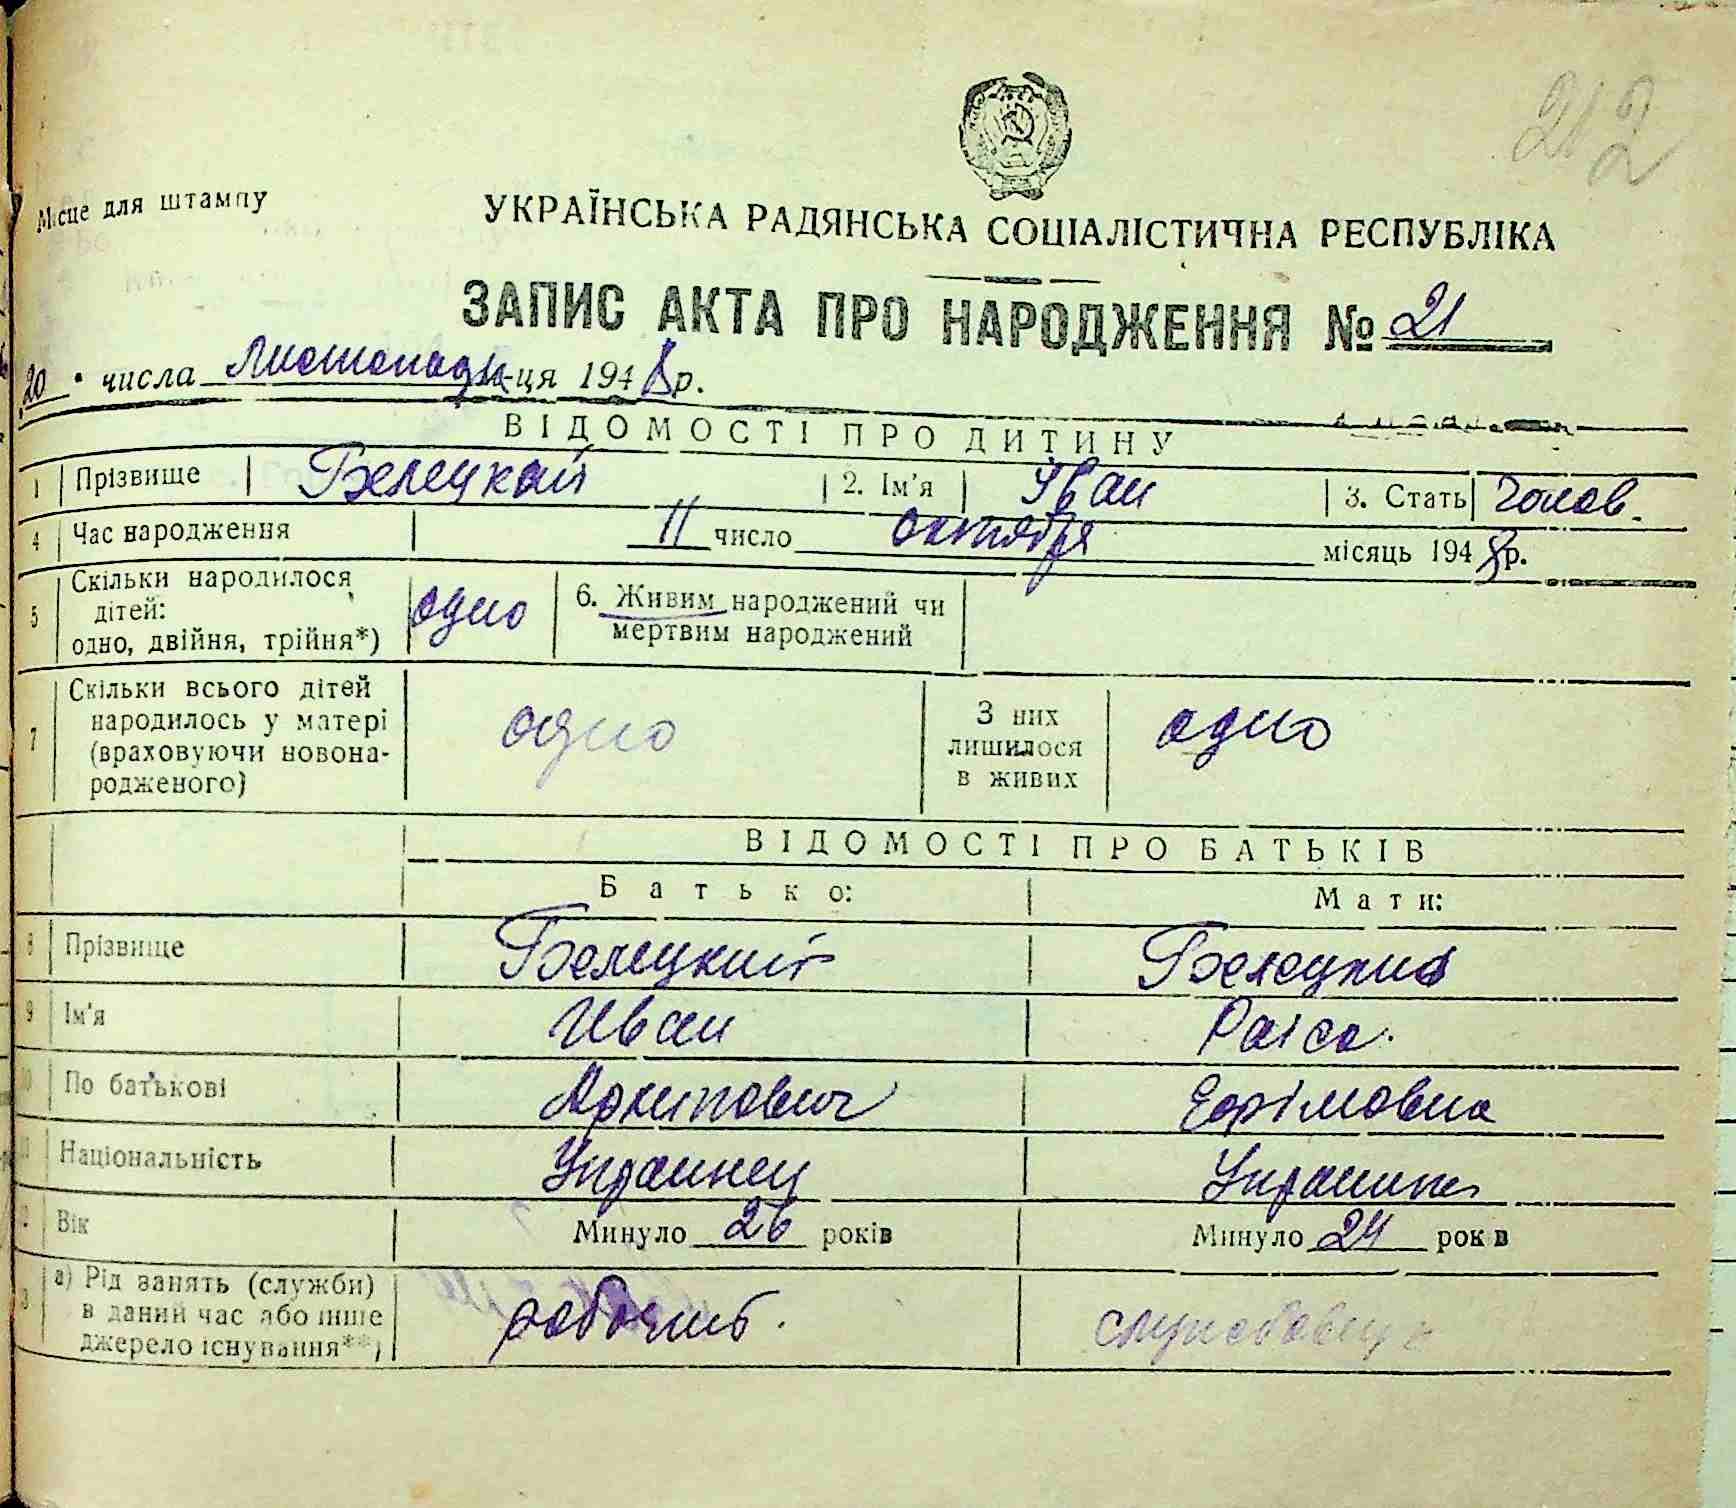 212
Місце для штампу
УКРАЇНСЬКА РАДЯНСЬКА СОЦІАЛІСТИЧНА РЕСПУБЛІКА
ЗАПИС АКТА ПРО НАРОДЖЕННЯ № 21
20 числа Листопада м-ця 1948 р.
ВІДОМОСТІ ПРО ДИТИНУ
1 Прізвище Белецкий 2. Ім'я Иван 3. Стать Чолов.
4 Час народження 11 число октября місяць 1948 р.
5 Скільки народилося дітей: одно, двійня, трійня*) одно 6. Живим народжений чи мертвим народжений
7 Скільки всього дітей народилось у матері (враховуючи новонародженого) одно З них лишилося в живих одно
ВІДОМОСТІ ПРО БАТЬКІВ
Батько: Мати:
8 Прізвище Белецкий Белецкая
9 Ім'я Иван Раіса.
10 По батькові Архипович Єфімовна
11 Національність Украинец Украинка
2 Вік Минуло 26 років Минуло 24 років
3 а) Рід занять (служби) в даний час або інше джерело існування**) робочий.